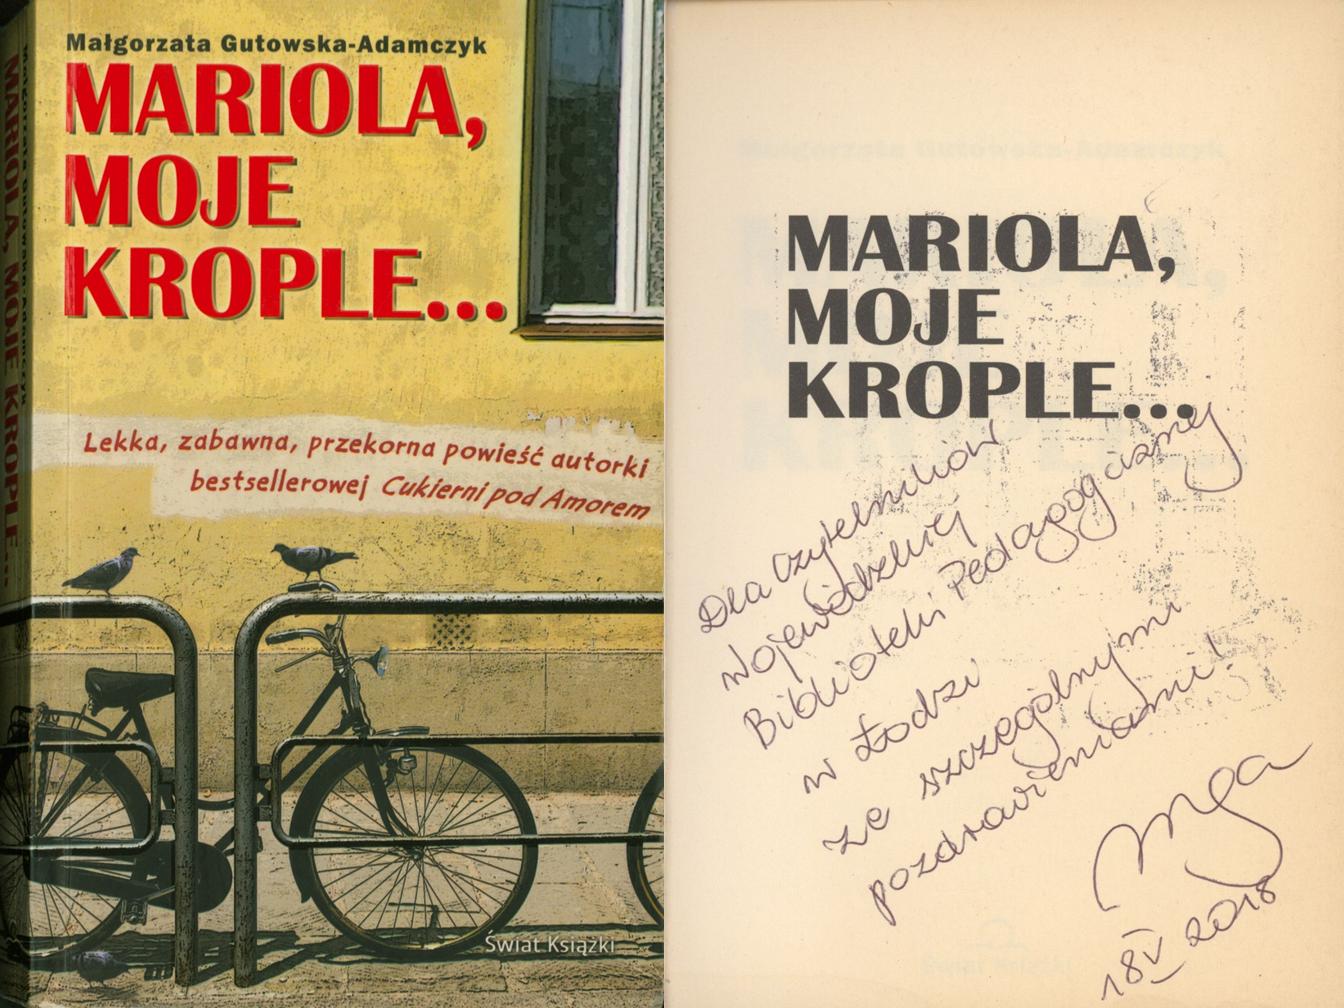 Małgorzata Gutowska-Adamczyk
MARIOLA,
MOJE
KROPLE...
Lekka, zabawna, przekorna powieść autorki
bestsellerowej Cukierni pod Amorem
Świat Książki
Małgorzata Gutowska-Adamczyk
MARIOLA, MOJE KROPLE...
MARIOLA,
MOJE
KROPLE...
Dla Czytelników
Wojewódzkiej
Biblioteki Pedagogicznej
w Łodzi
ze szczególnymi
pozdrowieniami!
MGA
18 V 2018